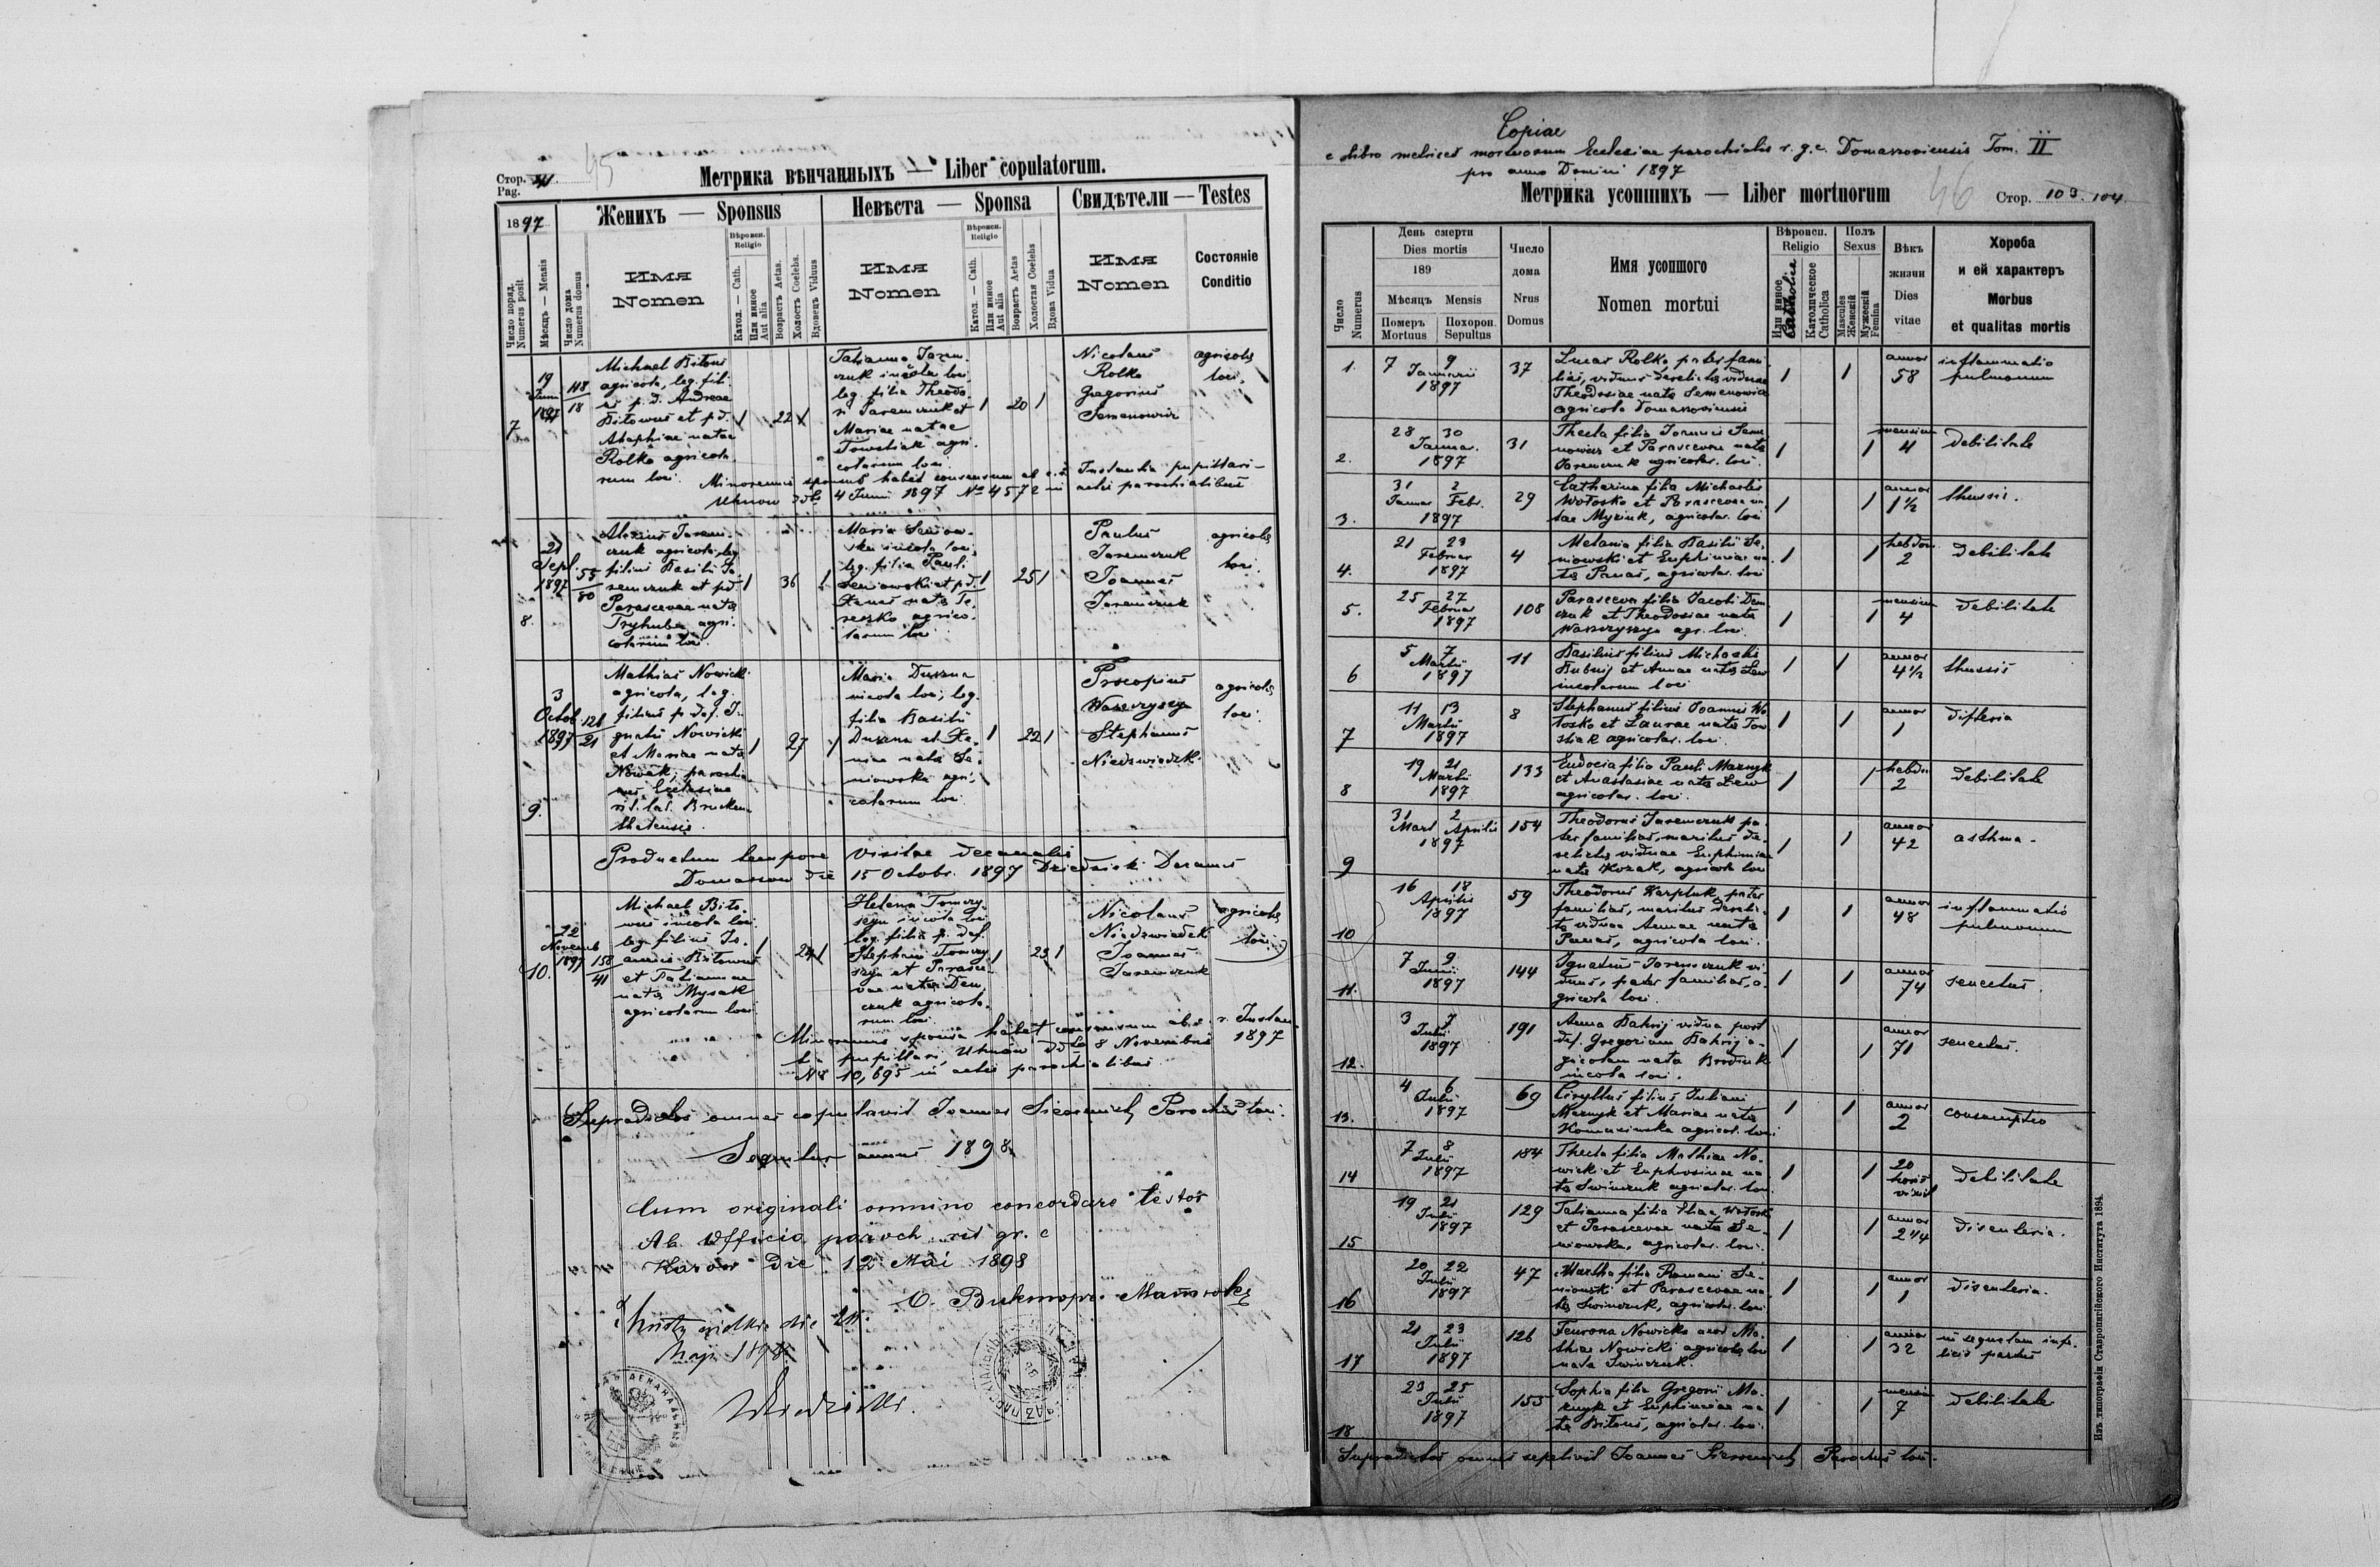 Стор. 41
Pag.
45
Метрика вѣнчанныхъ — Liber copulatorum.
1897
Женихъ — Sponsus
Невѣста — Sponsa
Свидѣтели — Testes
Число поряд.
Numerus posit
Мѣсяцъ — Mensis
Число дома
Numerus domus
Имя
Nomen
Вѣроисп.
Religio
Катол. — Cath.
Или инное
Aut alia
Возрастъ Aetas.
Холостъ Coelebs.
Вдовецъ Viduus
Имя
Nomen
Вѣроисп.
Religio
Катол. — Cath.
Или инное
Aut alia
Возрастъ Aetas
Холостая Coelebs
Вдова Vidua
Имя
Nomen
Состояніе
Conditio
7
19
Junii
1897
118
18
Michael Bitous
agricola, leg. fili-
us p. d. Andreae
Bitowus et p d.
Agaphiae natae
Rolko agricola-
rum loci
1
22
1
Tatianna Jarem-
czuk incola loci
leg. filia Theodo-
ri Jaremczuk et
Mariae natae
Towstiak agri-
colarum loci.
1
20
1
Nicolaus
Rolko
Gregorius
Semenowicz
agricolae
loci.
Minorennis sponsus habet consensum ab c. r. Instantia pupillari
Uhnow ddto 4 Junii 1897 No 4572 in actis parochialibus
8.
21
Sept.
1897
55
80
Alexius Jarem-
czuk agricola, leg
filius Basilii Ja-
remczuk et pd.
Parascevae nata
Tryhuba agri-
colarum loci.
1
36
1
Maria Seniow-
ska incola loci,
leg. filia Pauli
Seniowski et p d.
Xeniae nata Te-
reszko agrico-
larum loci
1
25
1
Paulus
Jaremczuk
Joannes
Jaremczuk
agricolae
loci.
9.
3
Octob.
1897
126
21
Mathias Nowicki
agricola, leg.
filius p. def. I-
gnatii Nowicki
et Mariae nata
Nowak, parochia-
nus Ecclesiae
rit. lat. Brucken-
thalensis.
1
27
1
Maria Duszna
incola loci, leg.
filia Basilii
Duszna et Xe-
niae nata Se-
niowska agri-
colarum loci
1
22
1
Procopius
Waszczyszyn
Stephanus
Niedzwiedzk
agricolae
loci.
Productum tempore visitae decanalis
Domaszow die 15 Octobr. 1897 Dziedzicki Decanus
10.
22
Novemb
1897
158
41
Michael Bito-
wus incola loci
leg filius Jo-
annis Bitowus
et Tatiannae
nata Mysak
agricolarum loci
1
24
1
Helena Tomczy-
szyn incola loci
leg. filia p. def.
Stephani Tomczy-
szyn et Parasce-
vae nata Dem-
czuk agricola-
rum loci.
1
23
1
Nicolaus
Niedzwiedzk
Joannes
Jaremczuk
agricolae
loci
Minorennis sponsa habet consensum ab c. r. Instan-
tia pupillari Uhnów ddto 8 Novembris 1897
No 10,695 in actis parochialibus
Supradictos omnes copulavit Joannes Parochus loci.
Sequitur annus 1898
Cum originali omnino concordare testor
Ab Officio paroch. rit gr. c
Karów Die 12 Mai 1898
О. Викторъ
die 24.
Maji 1898.
Copiae
e libro metrices mortuorum Ecclesiae parochialis r. g. c. Domaszoviensis Tom. II
pro anno Domini 1897
Метрика усопшихъ — Liber mortuorum
46
Стор. 103. 104.
Число
Numerus
День смерти
Dies mortis
189
Мѣсяцъ Mensis
Померъ
Mortuus
Похорон.
Sepultus
Число
дома
Nrus
Domus
Имя усопшого
Nomen mortui
Вѣроисп.
Religio
Или инное
Catholica
Католическое
Catholica
Полъ
Sexus
Mascules
Женскій
Мужескій
Femina
Вѣкъ
жизни
Dies
vitae
Хороба
и ей характеръ
Morbus
et qualitas mortis
1.
7 9
Januarii
1897
37
Lucas Rolko pater fami-
lias, viduus derelicta viduae
Theodosiae nata Semenowicz
agricola Domaszoviensis
1
1
annor
58
inflammatio
pulmonum
2.
28 30
Januar.
1897
31
Thecla filia Joannis Seme-
nowicz et Parascevae nata
Jaremczuk agricolar. loci.
1
1
mensium
4
debilitate
3.
31 2
Januar Febr.
1897
29
Catharina filia Michaelis
Wołoszko et Parascevae na-
tae Myziuk, agricolar. loci
1
1
annor
1 1/2
thussis.
4.
21 23
Februar
1897
4
Melania filia Basilii Se-
niowski et Euphimiae na-
ta Panas, agricolar. loci
1
1
hebdom.
2
debilitate
5.
25 27
Februar
1897
108
Parasceva filia Jacobi Dem-
czuk et Theodosiae nata
Waszczyszyn agr. loci.
1
1
mensium
4
debilitate
6
5 7
Martii
1897
11
Basilius filius Michaelis
Bubnij et Annae nata Lew
incolarum loci
1
1
annor
4 1/2
thussis
7
11 13
Martii
1897
8
Stephanus filius Joannis Wo-
łoszko et Laurae nata Tow-
stiak agricolar. loci.
1
1
annor
1
difteria
8
19 21
Martii
1897
133
Eudocia filia Pauli Maznyk
et Anastasiae nata Lew
agricolar. loci.
1
1
hebdo
2
debilitate
9
31 2
Mart Aprilis
1897
154
Theodorus Jaremczuk pa-
ter familias, maritus de-
relicta viduae Euphimiae
nata Kozak, agricola loci
1
1
annor
42
asthma.
10
16 18
Aprilis
1897
59
Theodorus Karpluk, pater
familias, maritus derelic-
ta viduae Annae nata
Panas, agricola loci.
1
1
annor
48
inflammatio
pulmonum
11.
7 9
Junii
1897
144
Ignatius Jaremczuk vi-
duus, pater familias, a-
gricola loci.
1
1
annor
74
senectus.
12.
3 7
Julii
1897
191
Anna Bahrij vidua post
def. Gregorium Bahrij a-
gricolam nata Brodziuk
incola loci.
1
1
annor
71
senectus.
13.
4 6
Julii
1897
69
Ciryllus filius Juliani
Maznyk et Mariae nata
Komarinska agricol. loci
1
1
annor
2
consumptio
14
7 8
Julii
1897
184
Thecla filia Mathiae No-
wicki et Euphrosinae na-
ta Swinczuk agricolar. loci.
1
1
20
horis
vixit
debilitate
15
19 21
Julii
1897
129
Tatianna filia Eliae Wołoszko
et Parascevae nata Se-
niowska, agricolar. loci.
1
1
annor
2 1/4
disenteria.
16
20 22
Julii
1897
47
Martha filia Romani Se-
niowski et Parascevae na-
ta Swinczuk, agricolar. loci
1
1
annor
1
disenteria.
17
21 23
Julii
1897
126
Feurona Nowicka uxor Ma-
thiae Nowicki agricola loci
nata Swinczuk.
1
1
annor
32
in sequelam infe-
licis partus
18
23 25
Julii
1897
155
Sophia filia Gregorii Ma-
znyk et Euphimiae na-
ta Bitous, agricolar. loci.
1
1
mensium
7
debilitate
Supradictos omnes sepelivit Joannes Parochus loci.
Изъ типографіи Ставропигійского Института 1894.